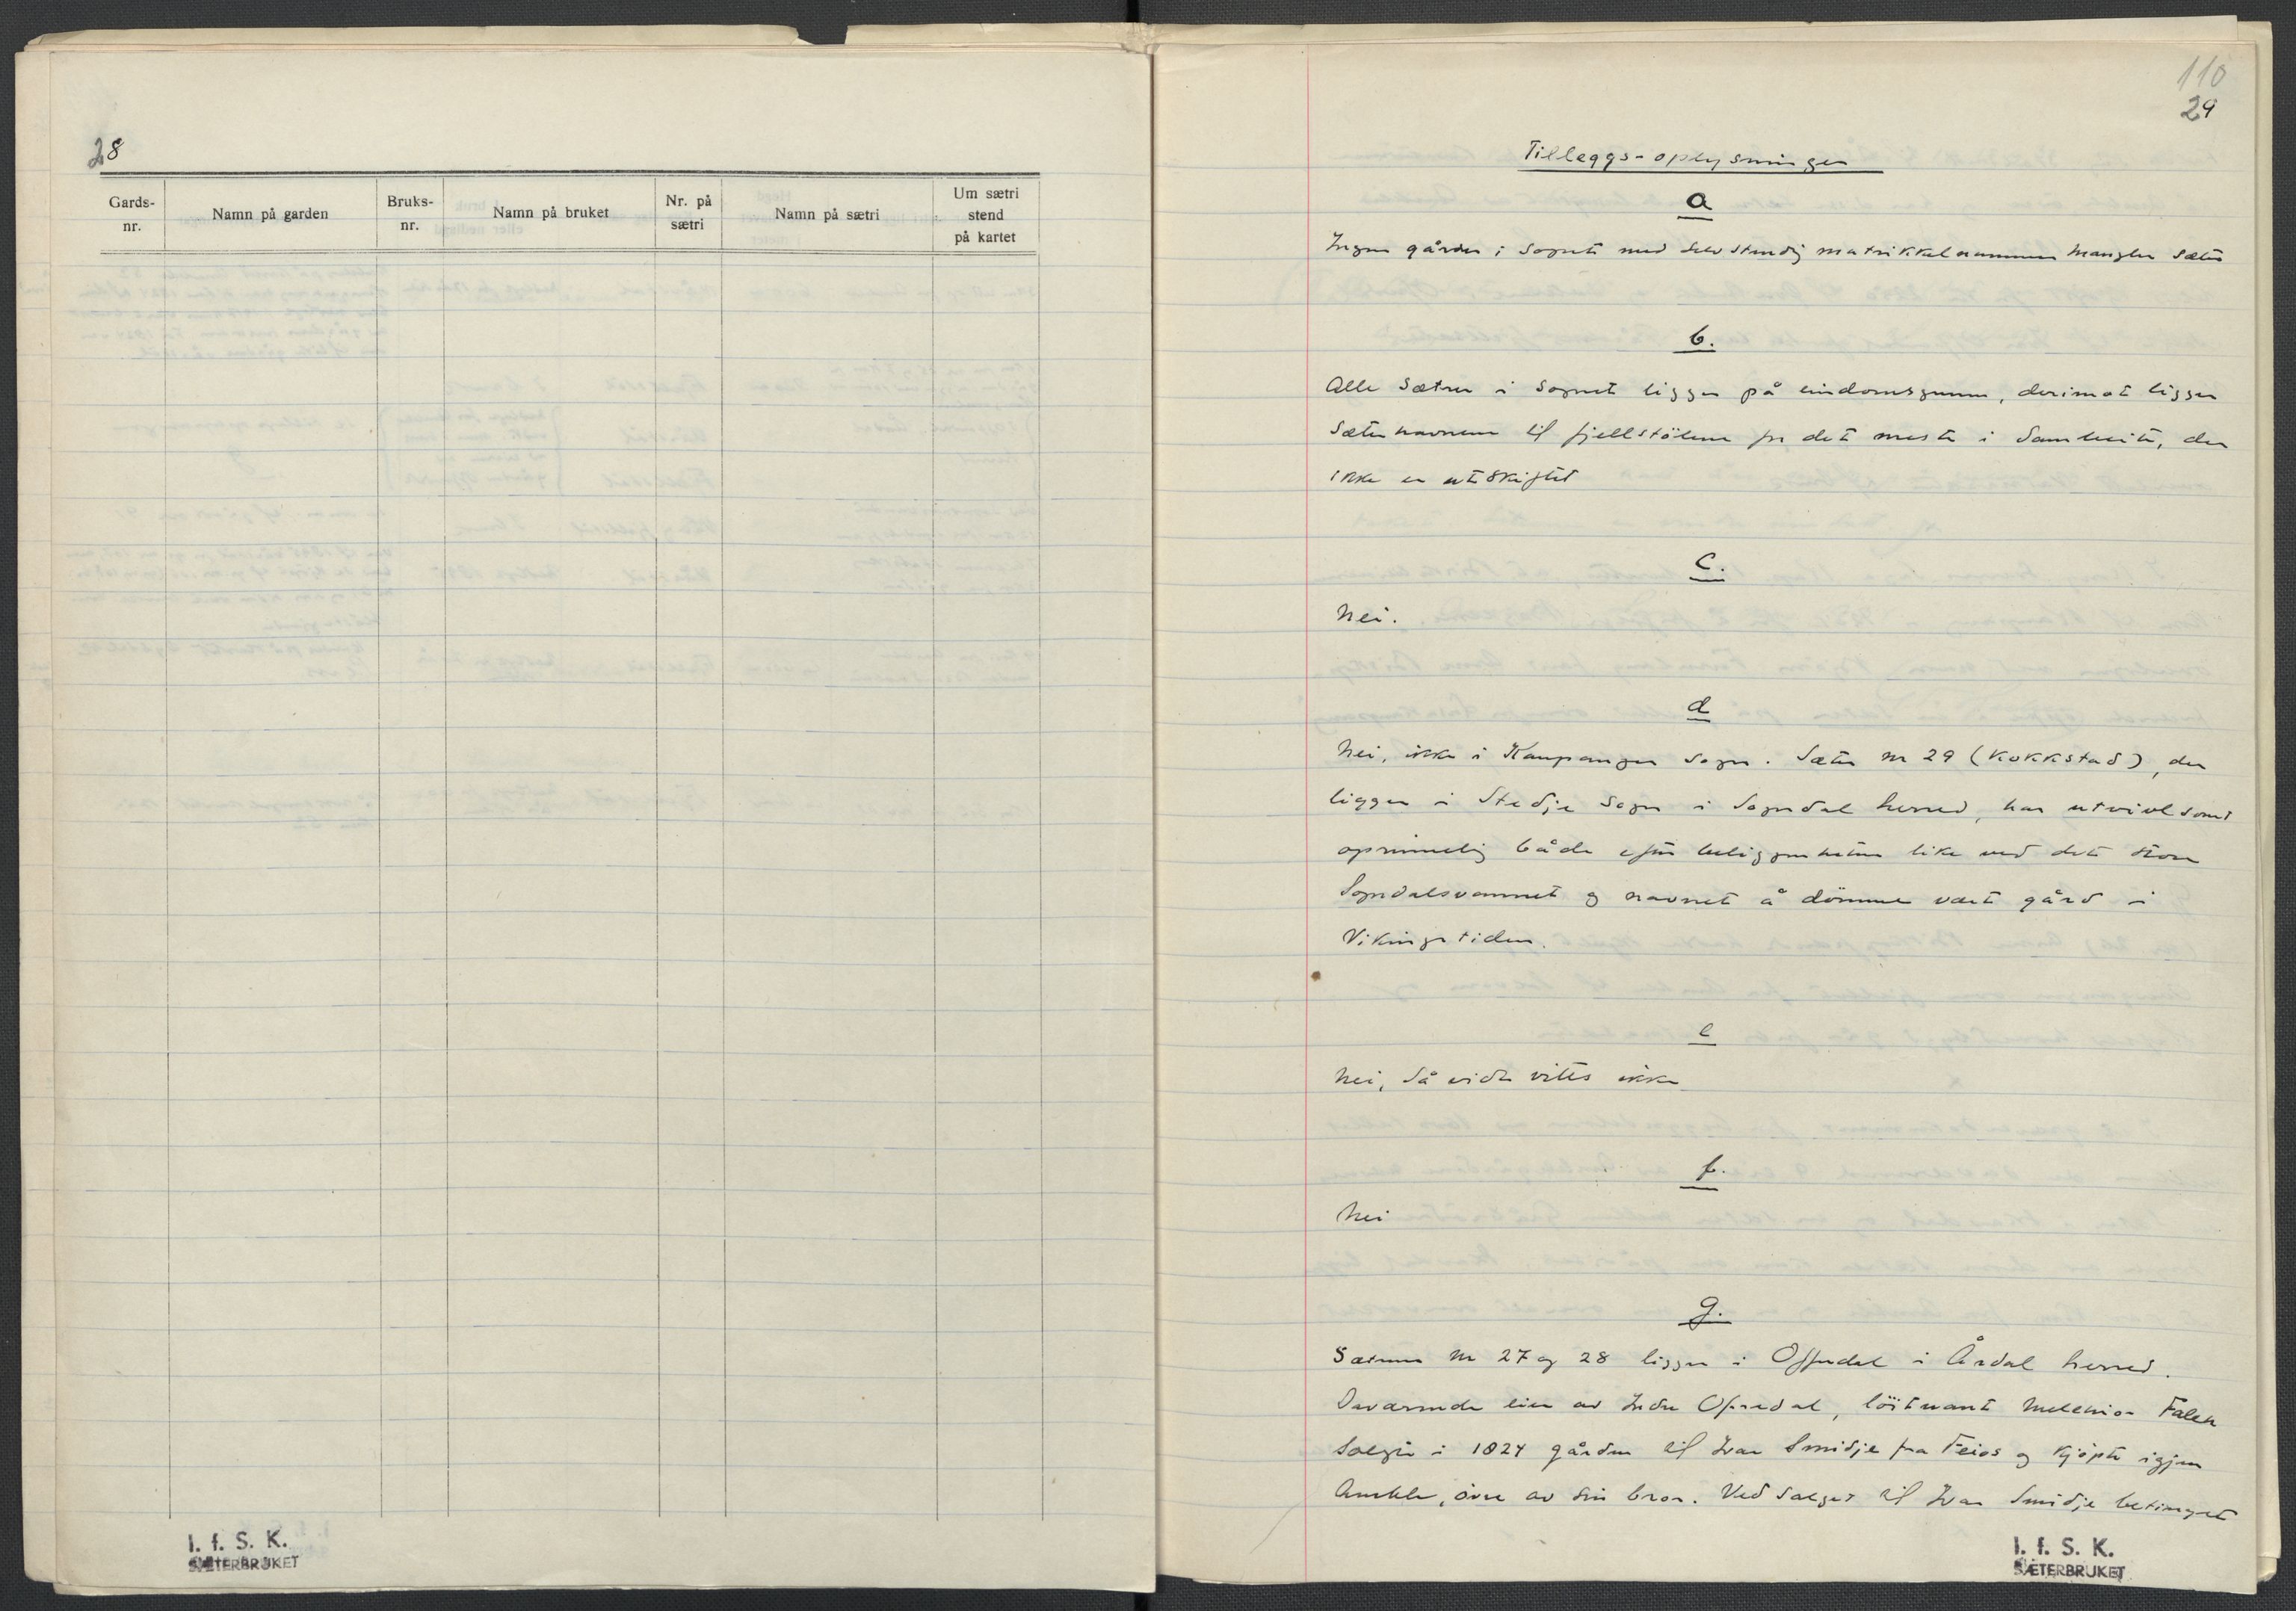 28
Gards-
nr.
Namn på garden
Bruks-
nr.
Namn på bruket
Nr. på
sætri
Namn på sætri
Um sætri
stend
på kartet
I. f. S. K.
SÆTERBRUKET
110
29
Tilleggs-oplysninger
a
Ingen gårder i sognet med selvstendig matrikkelnummer mangler sæter
b.
Alle sætrer i sognet ligger på eindomsgrunn, derimot ligger
sæterhavnene til fjellstölene for det meste i Sameeie, der
ikke er utskiftet
c.
Nei.
d
Nei, ikke i Kaupanger sogn. Sæter nr 29 (Kokkstad), der
ligger i Stedje sogn i Sogndal herred, har utvivlsomt
oprinnelig både efter beliggenheten like ved det store
Sogndalsvannet og navnet å dömme vært gård i
Vikingetiden.
e
Nei, så vidt vites ikke
f.
Nei
g.
Sætrene nr 27 og 28 ligger i Offerdal i Årdal herred.
Daværende eier av Indre Ofredal, löitnant Melchior Falch
solgte i 1824 gården til Ivar Smidje fra Feios og kjöpte igjen
Amble, övre av sin bror. Ved salget til Ivar Smidje betinget
I. f. S. K.
SÆTERBRUKET